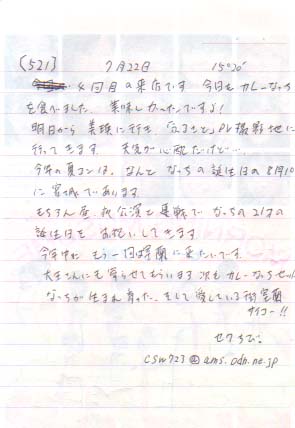 (521) 7月22日 15:20
4回目の来店です 今日もカレーなっち
を食べました。美味しかったですよ!
明日から美瑛に行き、「ふるさと」PV撮影地に
行ってきます 天気が心配だけど…
今年の夏コンは、なんとなっちの誕生日の8月10
に宮城であります。
もちろん昼、夜公演と連戦でなっちの21才の
誕生日を お祝いしてきます。
今年中に もう一回室蘭に来たいです。
大王さんにも寄らせてもらいます 次もカレーなっち
なっちが生まれ育った、そして愛している街室蘭
サイコー!!
csw723@ams.odn.ne.jp